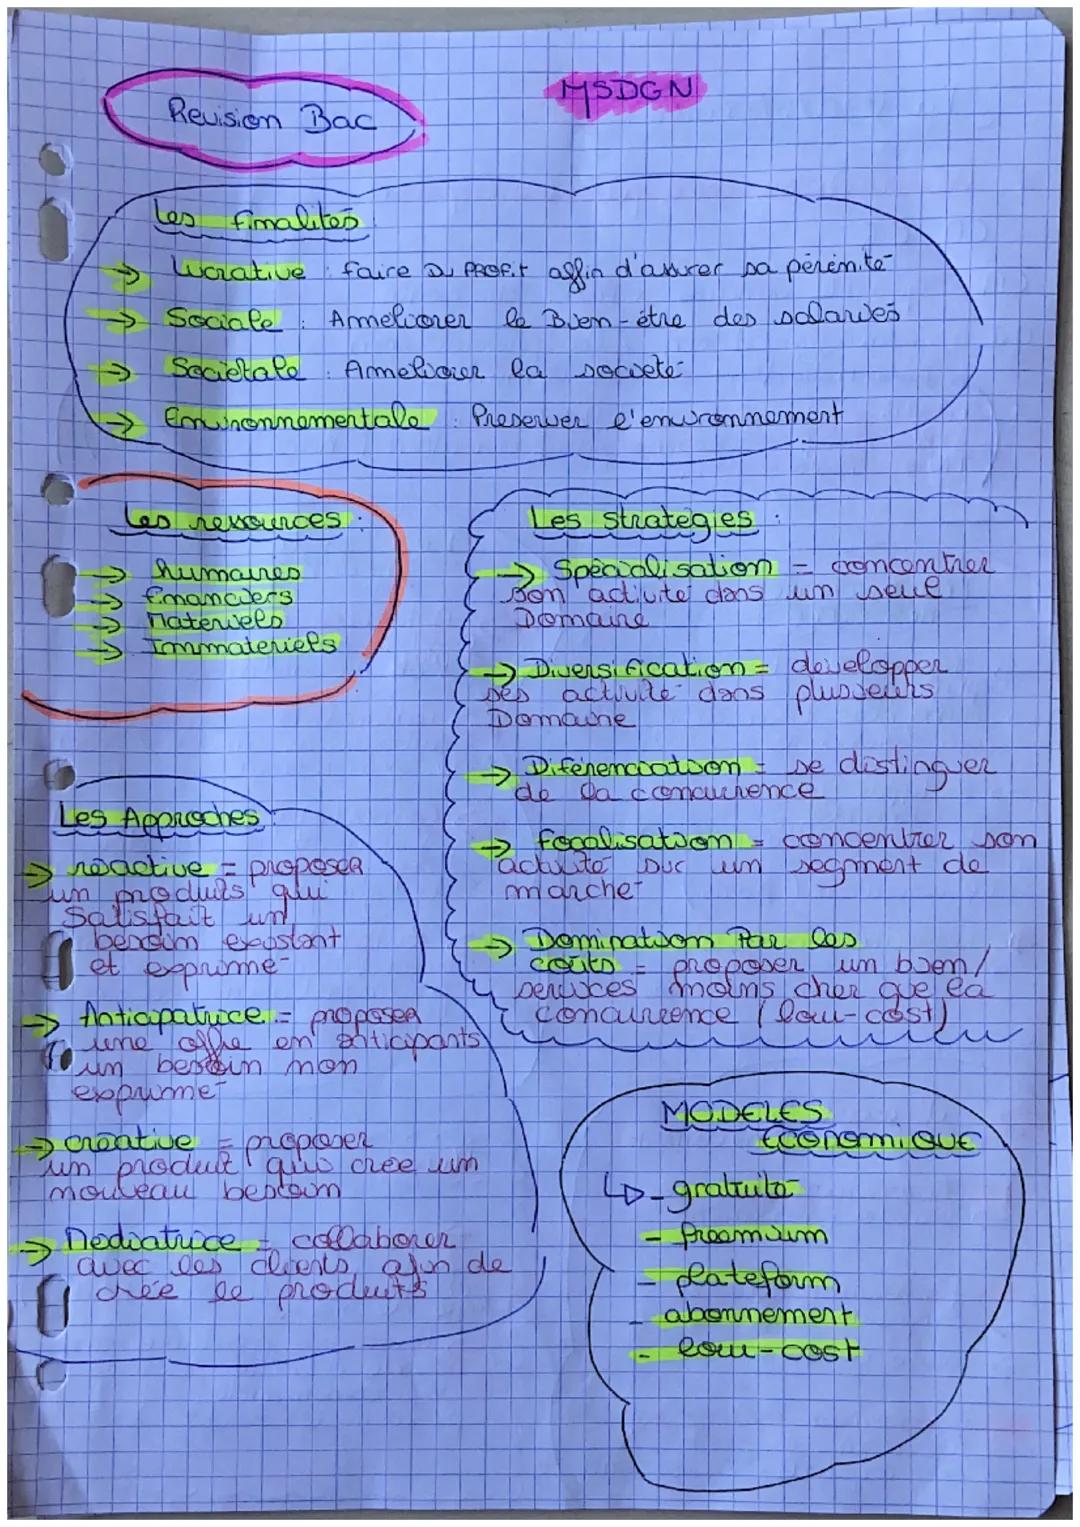 Revision Bac
MSDGN
Les finalités
→ Lucrative : faire Du PROFit affin d'assurer sa pérénité
→ Sociale : Ameliorer le Bien-être des salariés
→ Sociétale : Ameliorer la société
→ Environnementale : Preserver l'environnement
Les ressources :
→ humaires
→ financiers
→ Materiels
→ Immateriels
Les strategies :
→ Spécialisation = concentrer
son activité dans un seul
Domaine
→ Diversification = developper
ses activité dans plusieurs
Domaine
→ Diférenciation = se distinguer
de la concurence
→ focalisation = concentrer son
activité sur un segment de
marché
→ Domination Par les
coûts = proposer un bien/
services moins cher que la
concurrence (low-cost)
Les Approches
→ réactive = proposer
un produits qui
Satisfait un
besoin existant
et exprimé
→ Anticipatrice = proposer
une offre en anticipants
un besoin non
exprimé
→ créative = proposer
un produit qui crée un
nouveau besoin
→ Médiatrice = collaborer
avec les clients afin de
crée le produits
MODELES
économique
↳ - gratuité
- freemium
- plateform
- abonnement
- low-cost